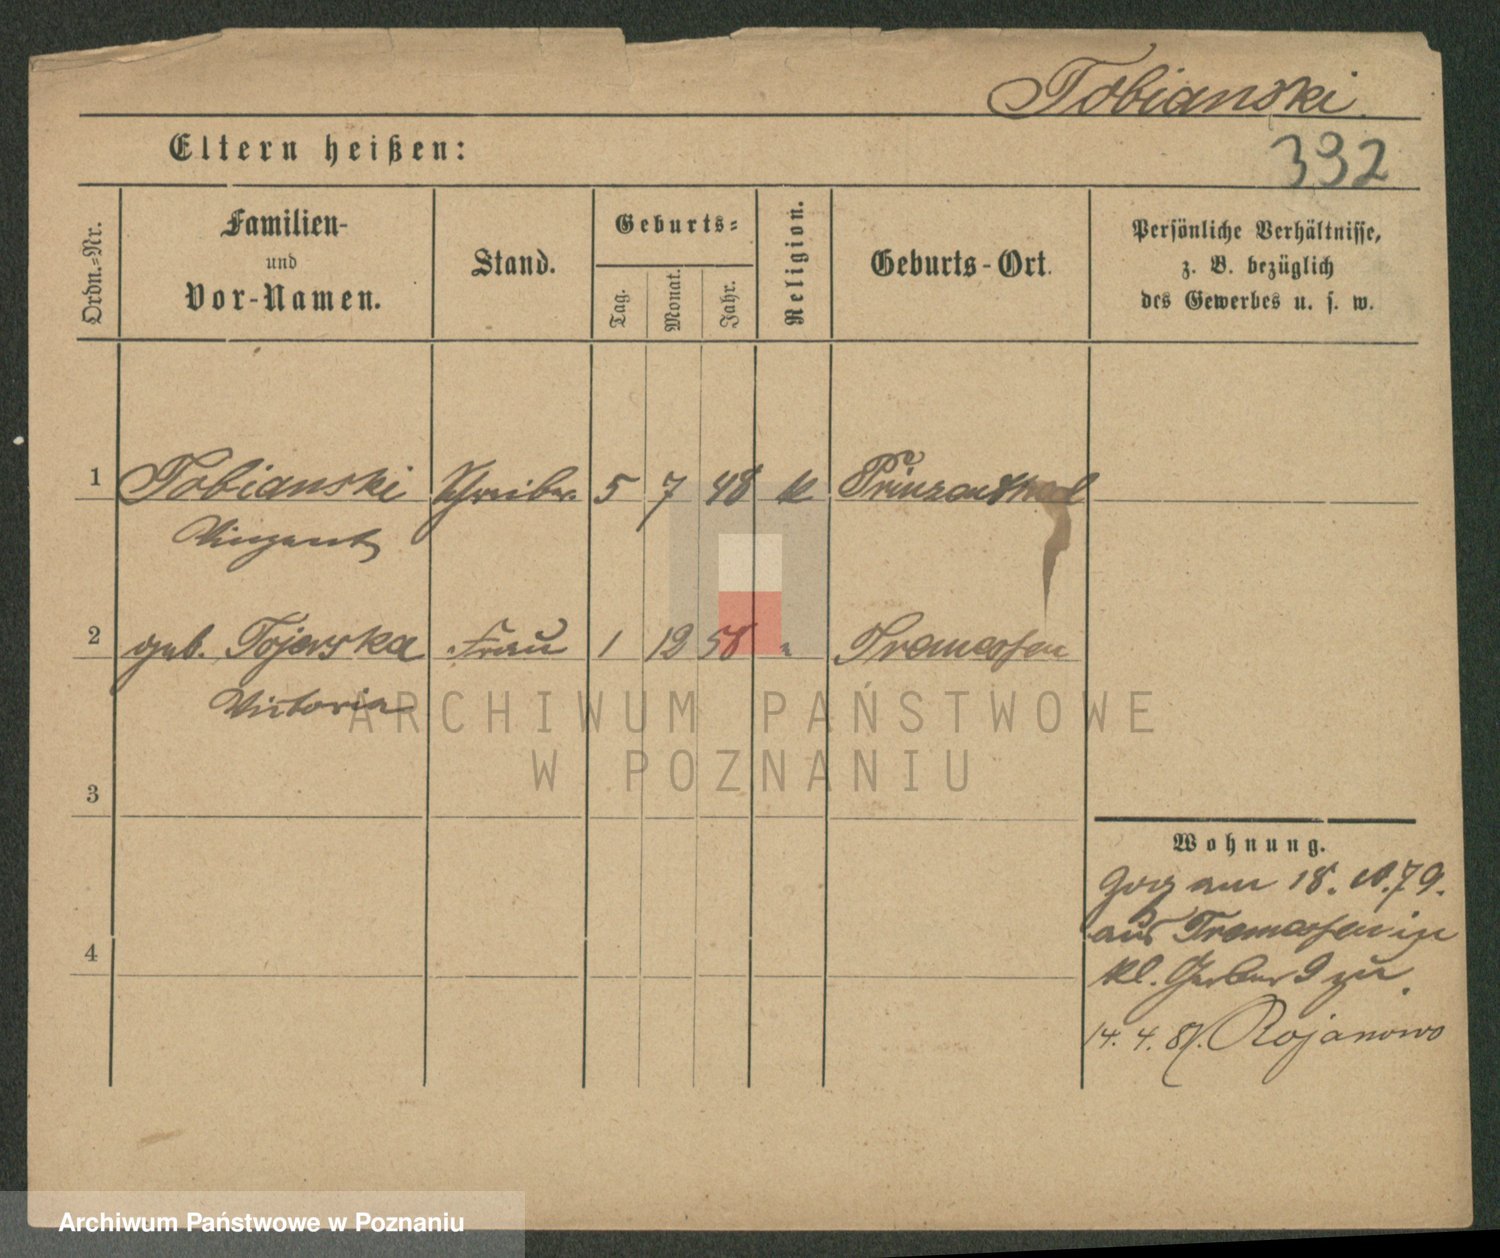 Tobianski.
392
Eltern heißen:
Ordn.-Nr.
Familien-
und
Vor-Namen.
Stand.
Geburts-
Tag.
Monat.
Jahr.
Religion.
Geburts-Ort.
Persönliche Verhältnisse,
z. B. bezüglich
des Gewerbes u. s. w.
1 Tobianski Schreiber 5 7 48 k Prinzenthal
Vinzent
2 geb. Tojerska Frau 1 12 58 " Tremessen
Victoria
ARCHIWUM PAŃSTWOWE
W POZNANIU
3
Wohnung.
Zog am 18. 10. 79.
aus Tremessen in
4
kl. Gerber 9 zu.
14. 4. 81. Rojanowo
Archiwum Państwowe w Poznaniu